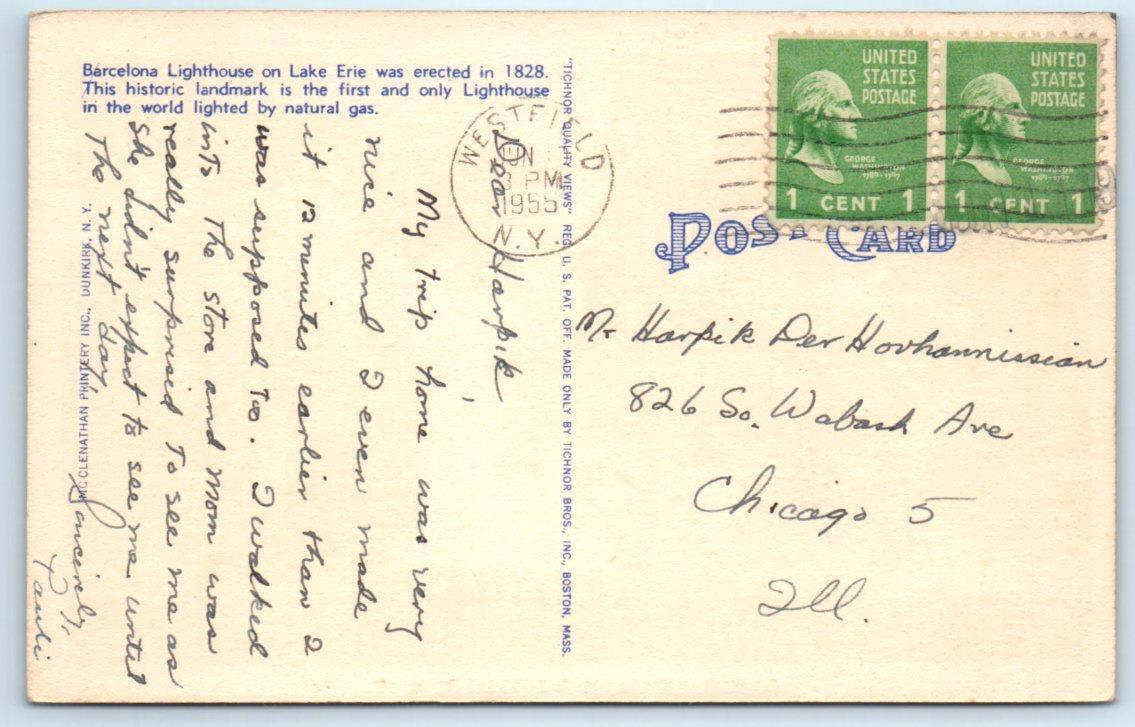 Barcelona Lighthouse on Lake Erie was erected in 1828.
This historic landmark is the first and only Lighthouse
in the world lighted by natural gas.
Dear Harpik
My trip home was very
nice and I even made
it 12 minutes earlier than I
was supposed too. I walked
into the store and Mom was
really surprised to see me as
she didn't expect to see me until
the next day.
Sincerely,
Pauli
MC CLENATHAN PRINTERY INC., DUNKIRK, N. Y.
"TICHNOR QUALITY VIEWS" REG. U. S. PAT. OFF. MADE ONLY BY TICHNOR BROS., INC., BOSTON, MASS.
WESTFIELD
JUN
3 PM
1955
N.Y.
UNITED
STATES
POSTAGE
GEORGE
WASHINGTON
1789-1797
1 CENT 1
UNITED
STATES
POSTAGE
GEORGE
WASHINGTON
1789-1797
1 CENT 1
POST CARD
Mr Harpik Der Hovhannissian
826 So. Wabash Ave
Chicago 5
Ill.